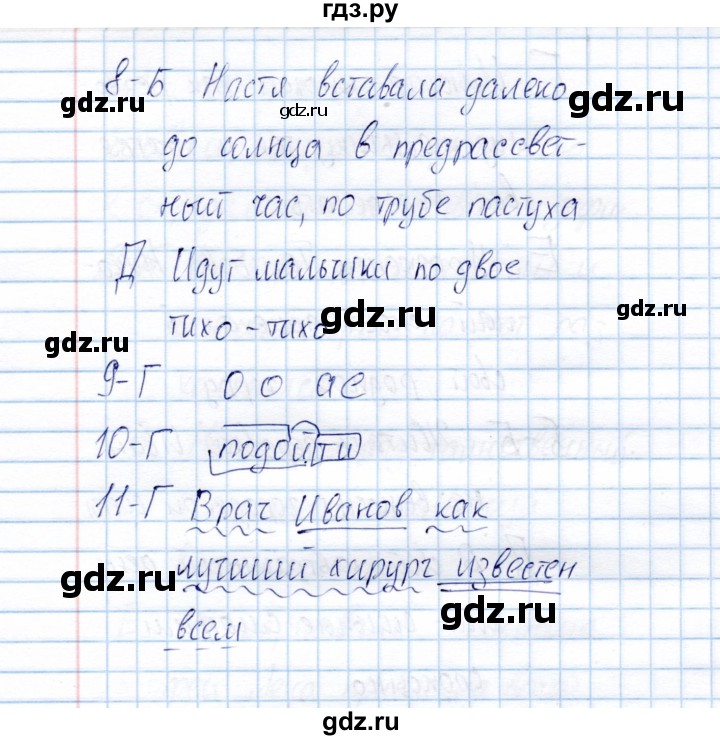 гдз.ру
8-Б Настя вставала далеко
gdz.ru
gdz.ru
gdz.ru
до солнца в предрассвет-
ный час, по трубе пастуха
Д Идут мальчики по двое
gdz.ru
gdz.ru
тихо-тихо
gdz.ru
9-Г о о а е
10-Г подойти
gdz.ru
gdz.ru
11-Г Врач Иванов как
лучший хирург известен
gdz.ru
gdz.ru
всем
gdz.ru